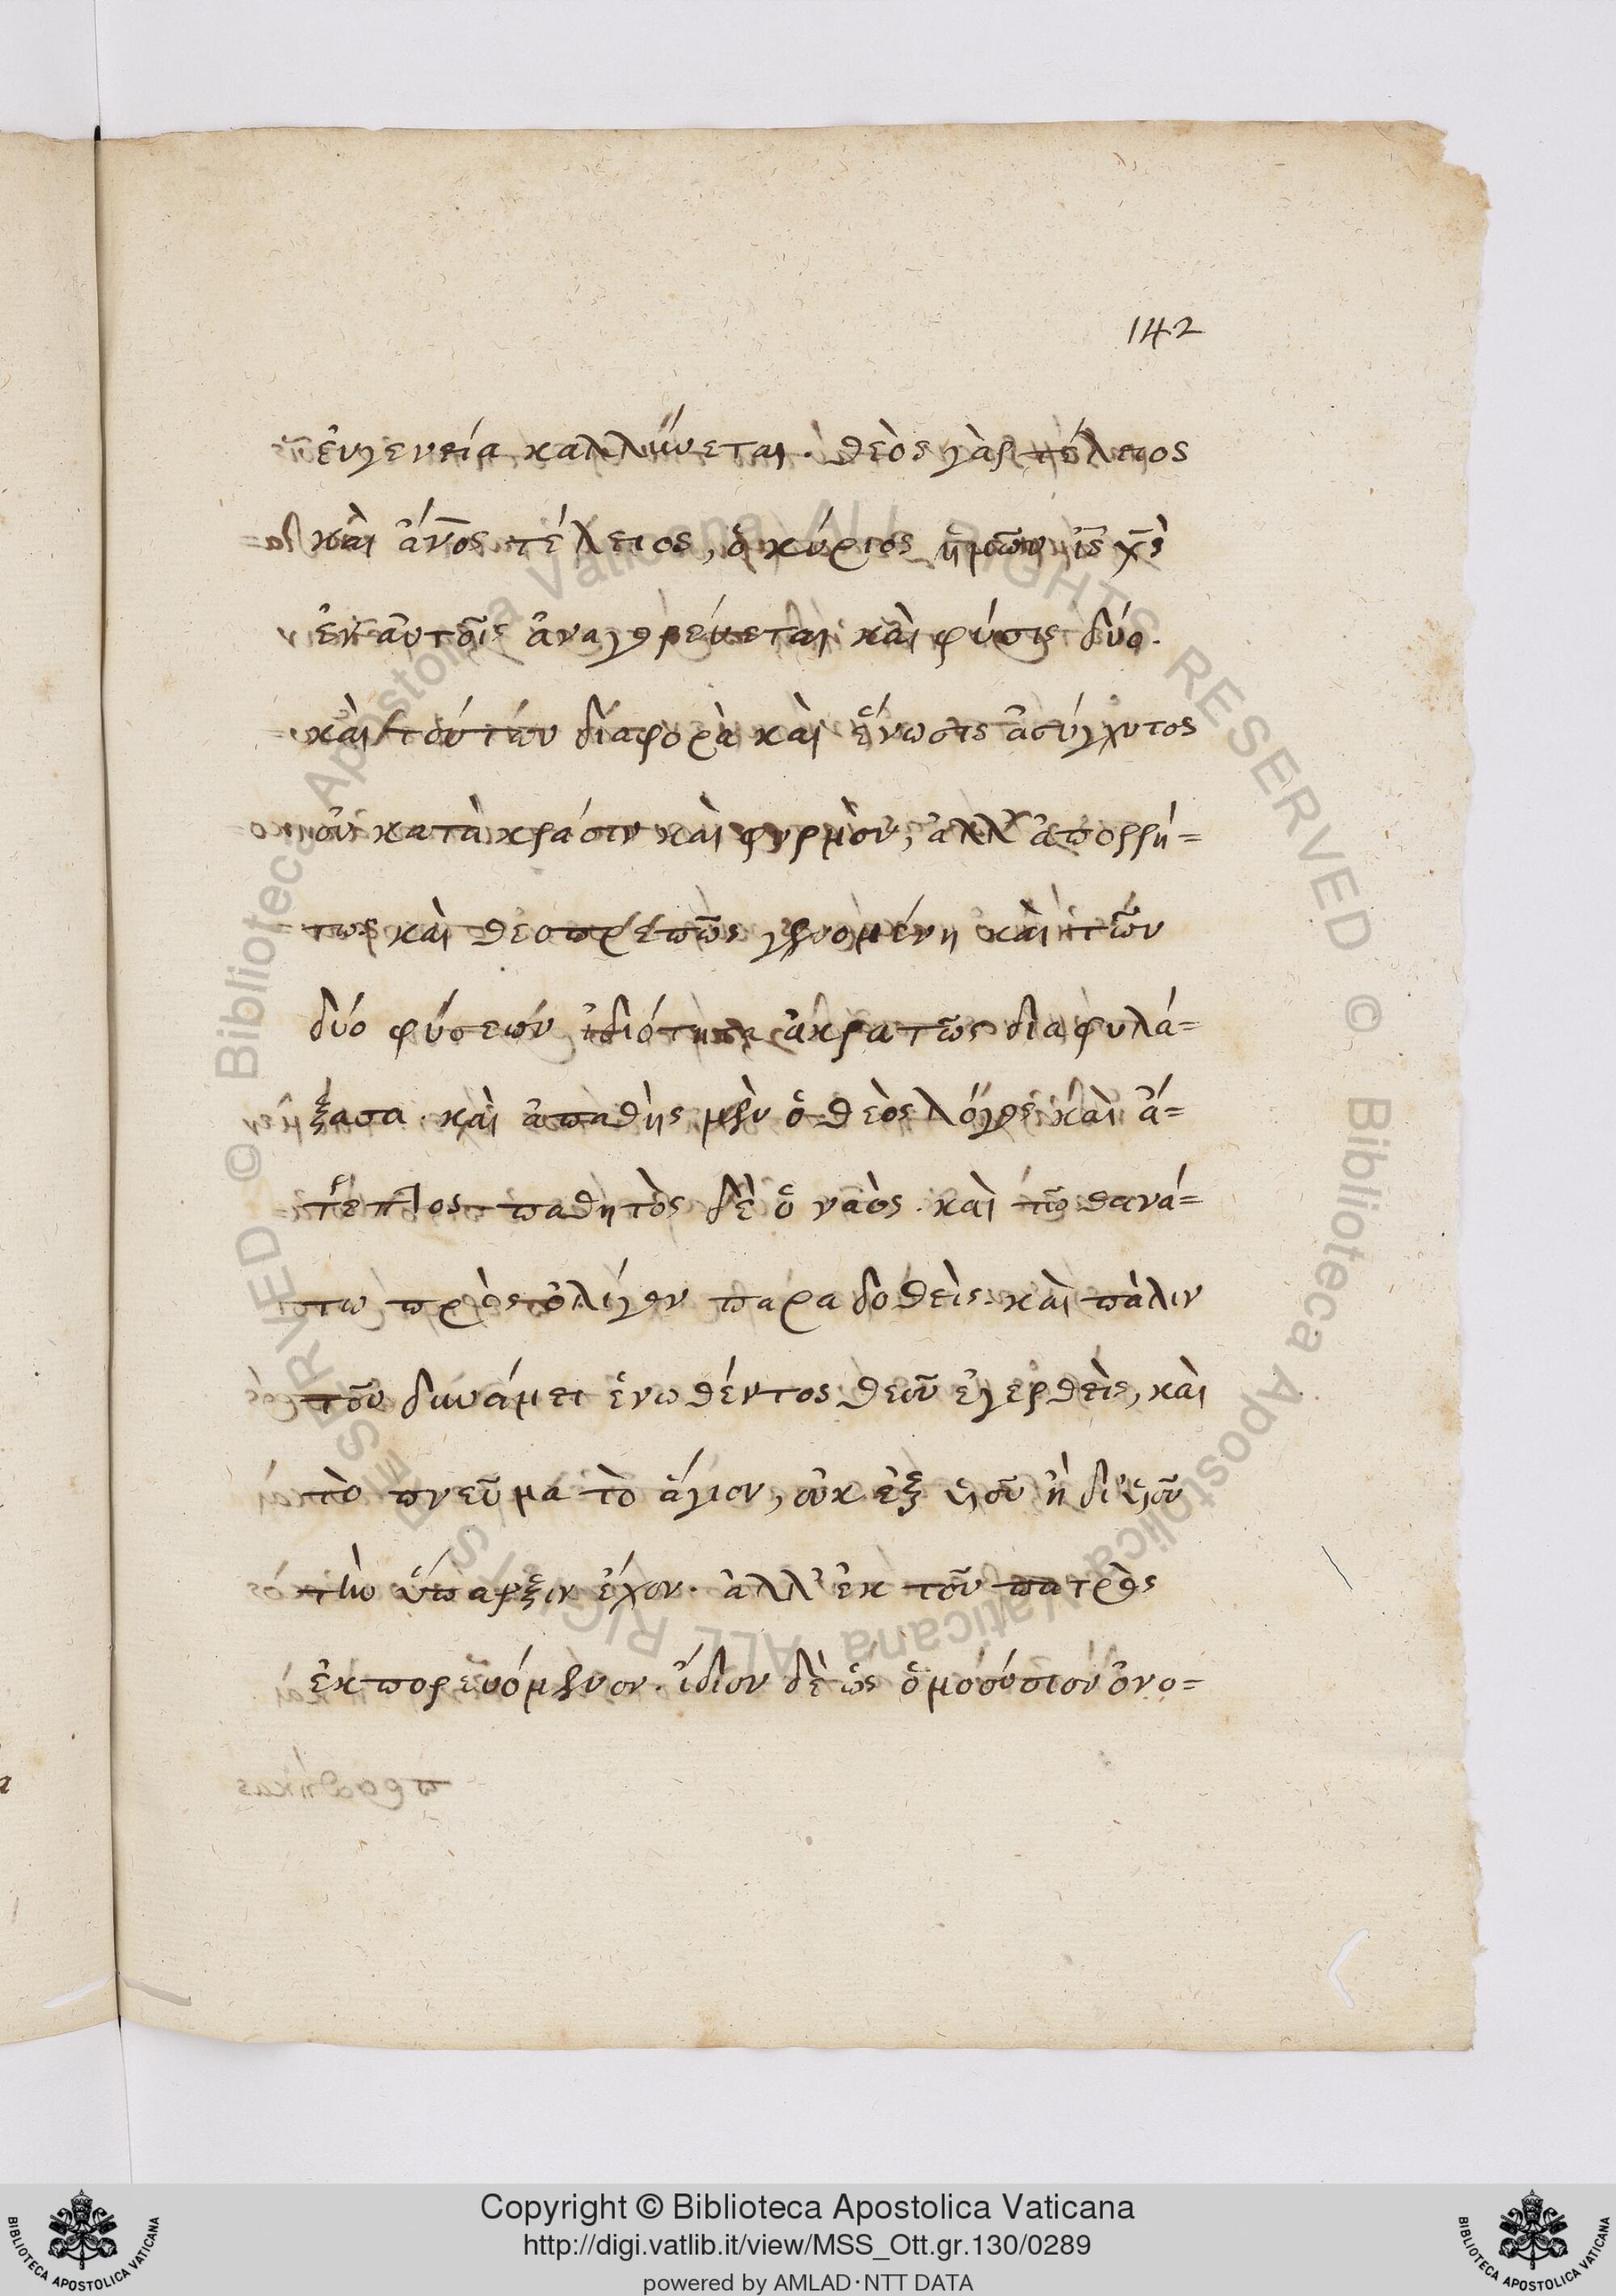 142
εὐγενεία καλλΰνεται. θεὸς γὰρ τέλειος
καὶ ἄν̅ο̅ς τέλειος, ὁ κύριος ἡμῶν ι̅ς̅ χ̅ς̅
ἐν αὐτοῖς ἀναγορεύεται καὶ φύσις δύο.
καὶ τούτων διαφορὰ καὶ ἕνωσις ἀσύγχυτος
οὐ κατὰ κρᾶσιν καὶ φυρμὸν, ἀλλ' ἀπορρή=
τως καὶ θεοπρεπῶς γενομένη καὶ τῶν
δύο φύσεων ἰδιότητα ἀκρατῶς διαφυλά=
ξασα. καὶ ἀπαθὴς μὲν ὁ θεὸς λόγος καὶ ἄ=
τρεπτος παθητὸς δὲ ὁ ναὸς. καὶ τῶ θανά=
τω πρὸς ὀλίγον παραδοθεὶς. καὶ πάλιν
τοῦ δυνάμει ἑνωθέντος θεοῦ ἐγερθεὶς, καὶ
τὸ πνεῦμα τὸ ἅγιον, οὐκ ἐξ υ̅ι̅οῦ ἢ δι' υ̅ι̅οῦ
τὴν ὕπαρξιν ἔχον. ἀλλ' ἐκ τοῦ πατρὸς
ἐκπορευόμενον. ἴδιον δὲ ὡς ὁμοούσιον ὀνο=
Copyright © Biblioteca Apostolica Vaticana
http://digi.vatlib.it/view/MSS_Ott.gr.130/0289
powered by AMLAD·NTT DATA
BIBLIOTECA APOSTOLICA VATICANA
BIBLIOTECA APOSTOLICA VATICANA
© Biblioteca Apostolica Vaticana ALL RIGHTS RESERVED © Biblioteca Apostolica Vaticana ALL RIGHTS RESERVED